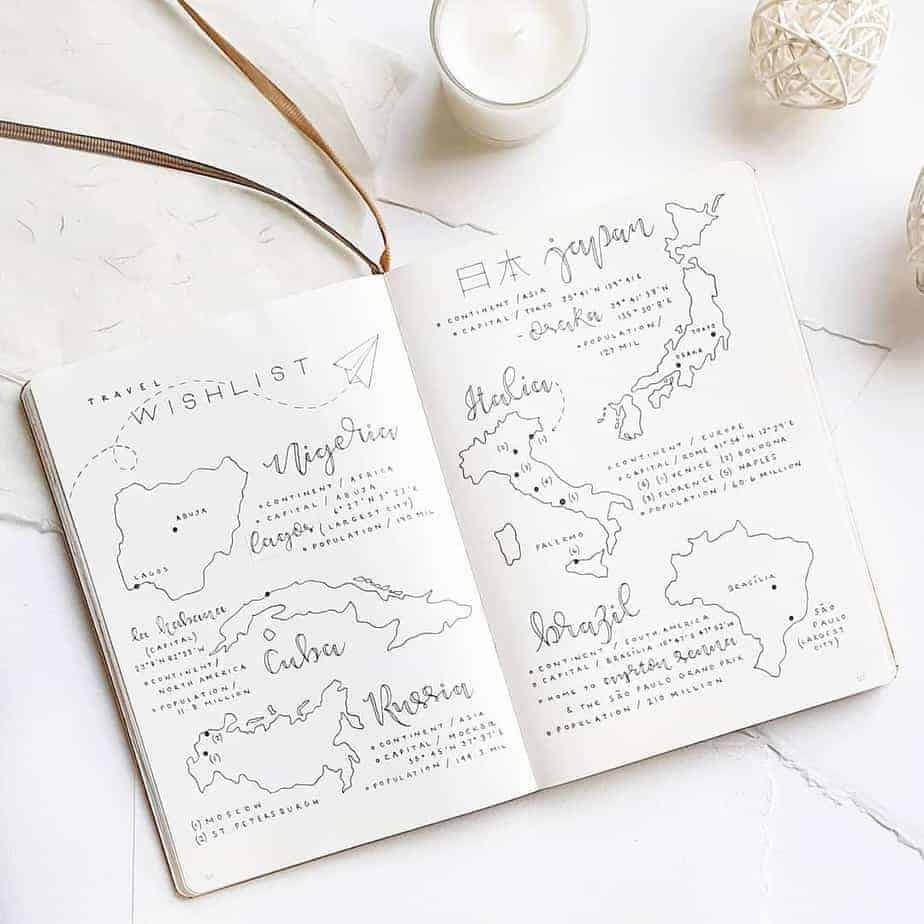 TRAVEL
WISHLIST
Nigeria
CONTINENT / AFRICA
CAPITAL / ABUJA
lagos (LARGEST CITY)
POPULATION / 190 MIL
ABUJA
LAGOS
la habana
(CAPITAL)
CONTINENT /
NORTH AMERICA
POPULATION /
11.5 MILLION
Cuba
Russia
CONTINENT / ASIA
CAPITAL / МОСКВА
55°45'N 37°37'E
POPULATION / 144.3 MIL
(2)
(1)
(1) MOSCOW
(2) ST. PETERSBURGH
日本 japan
CONTINENT / ASIA
CAPITAL / TOKYO 35°41'N 139°41'E
-osaka
POPULATION /
127 MIL
TOKYO
OSAKA
Italia
CONTINENT / EUROPE
CAPITAL / ROME 41°54'N 12°29'E
(1) VENICE BOLOGNA
(3) FLORENCE (5) NAPLES
POPULATION / 60.6 MILLION
PALERMO
(6)
brazil
CONTINENT / SOUTH AMERICA
CAPITAL / BRASÍLIA 15°47'S 47°52'W
HOME TO ayrton senna
& THE SÃO PAULO GRAND PRIX
POPULATION / 210 MILLION
BRASÍLIA
SÃO
PAULO
(LARGEST
CITY)